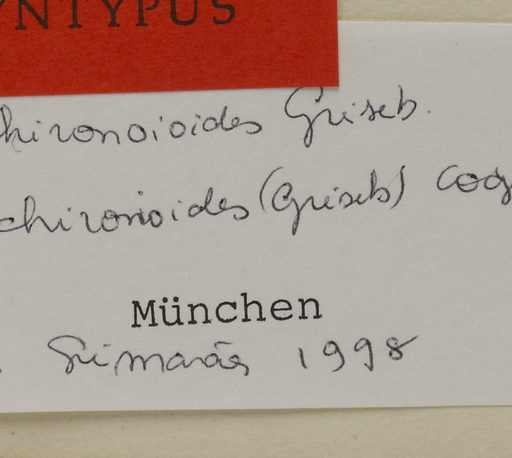 YNTYPUS
hironoioides Griseb.
chironioides (Griseb) Cog
München
Guimarães 1998